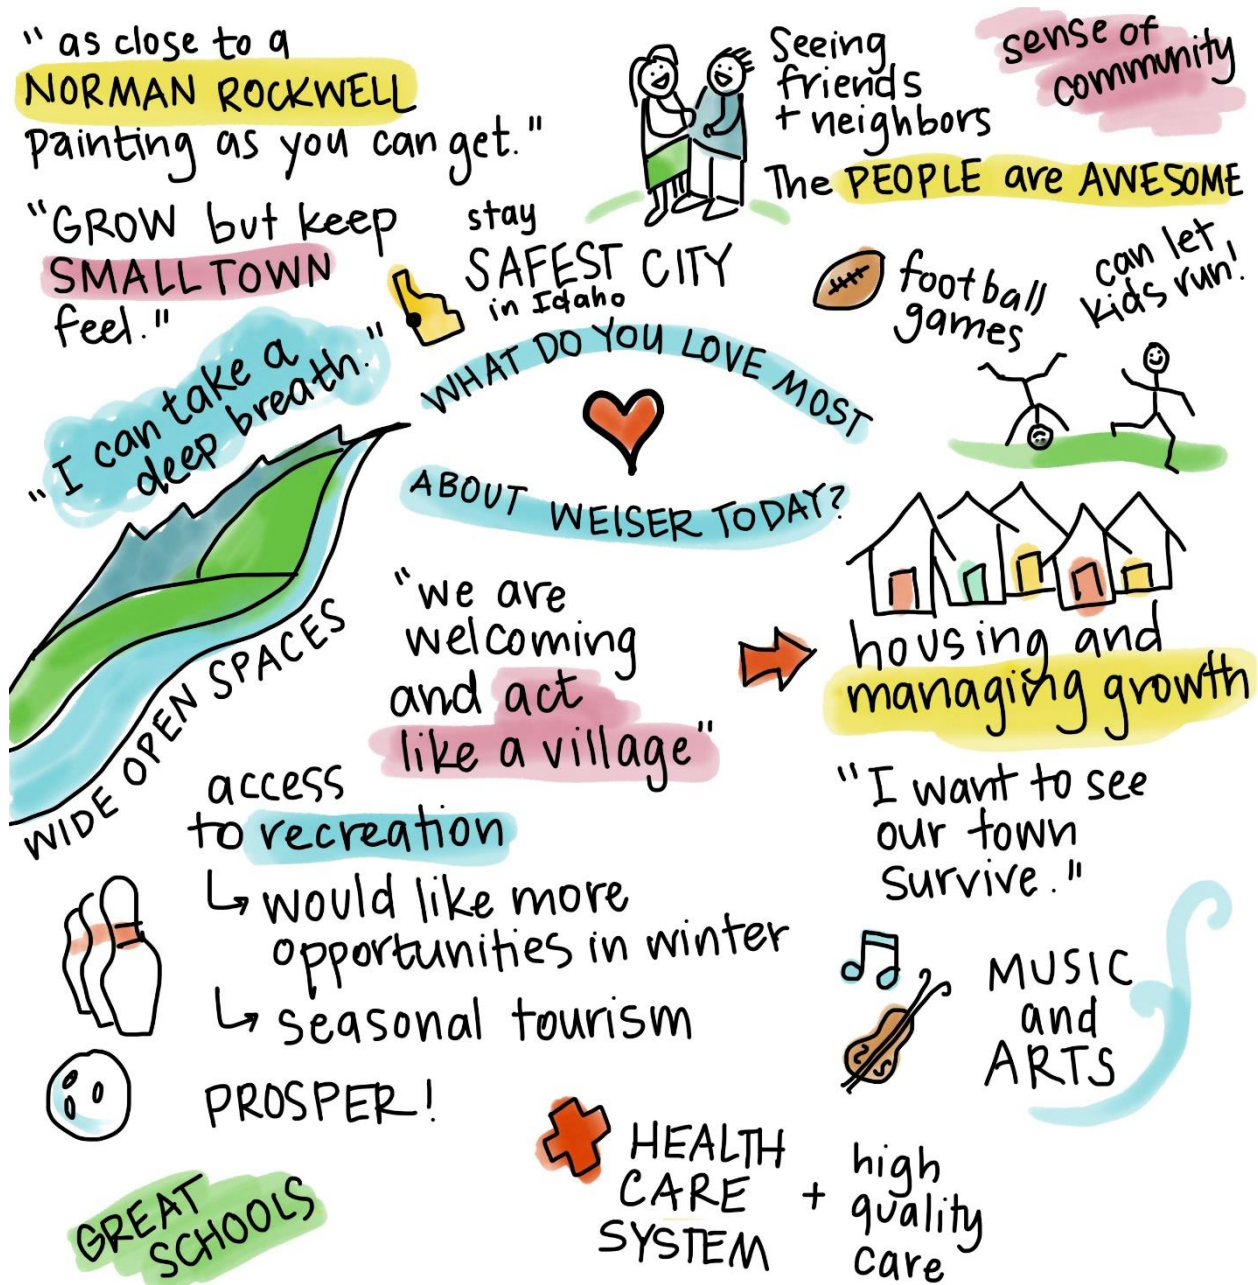 "as close to a
NORMAN ROCKWELL
painting as you can get."
Seeing
friends
+ neighbors
sense of
community
The PEOPLE are AWESOME
"GROW but keep
SMALL TOWN
feel."
stay
SAFEST CITY
in Idaho
football
games
can let
kids run!
"I can take a
deep breath."
WHAT DO YOU LOVE MOST
ABOUT WEISER TODAY?
WIDE OPEN SPACES
"we are
welcoming
and act
like a village"
housing and
managing growth
"I want to see
our town
survive."
access
to recreation
would like more
opportunities in winter
seasonal tourism
PROSPER!
MUSIC
and
ARTS
GREAT
SCHOOLS
HEALTH
CARE
SYSTEM
+
high
quality
care